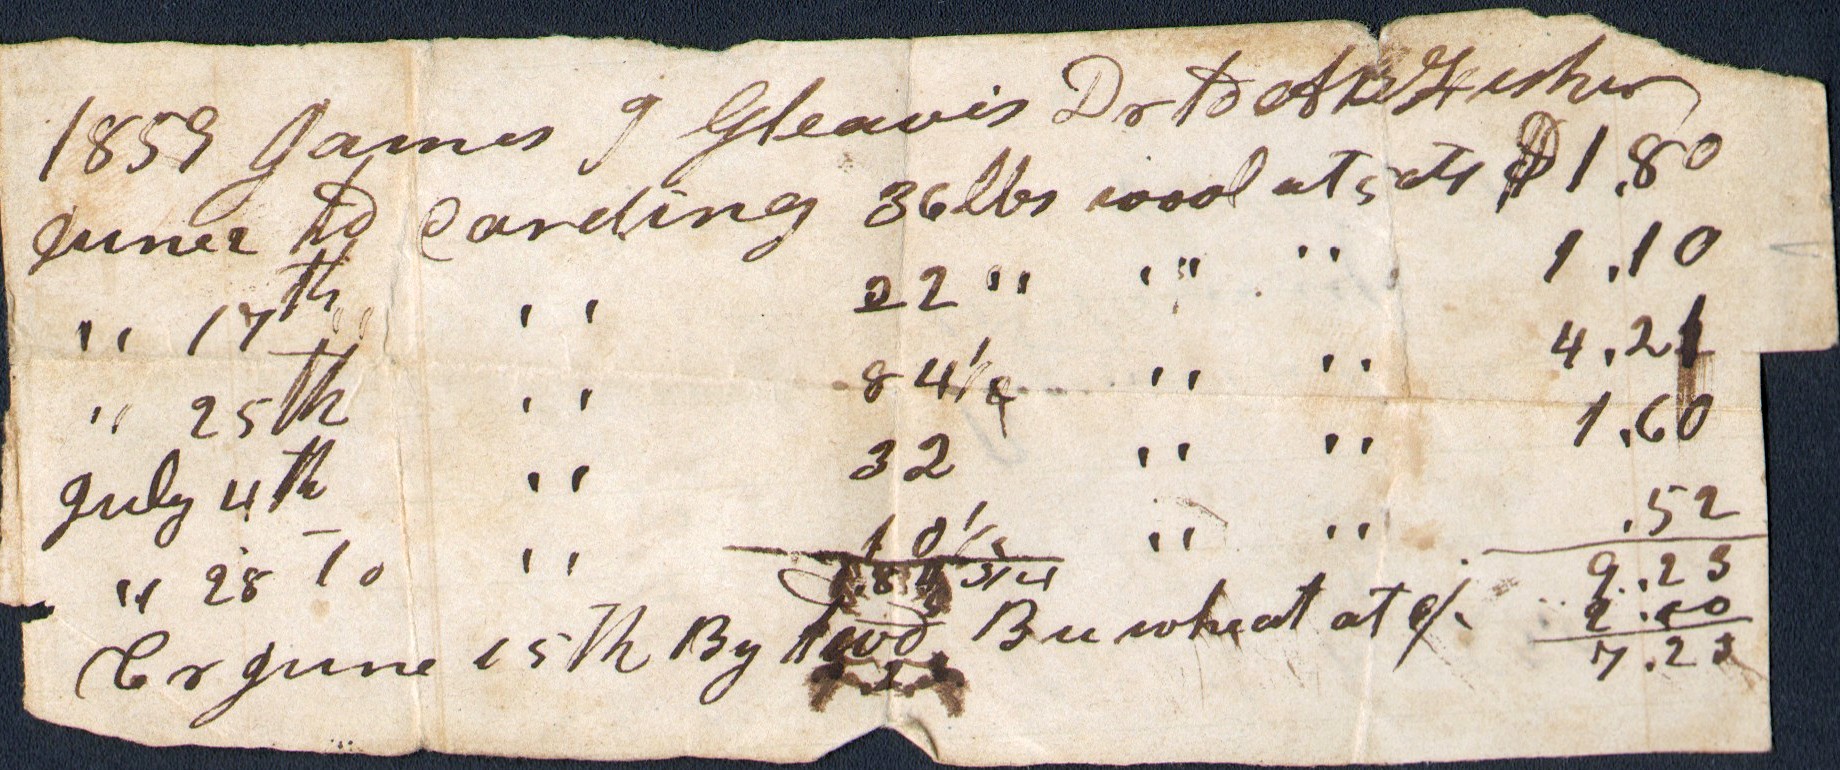 1859 James J Gleavis Dr to Fisher
June 2 to Carding 36 lbs wool at 5 cts $1.80
" 17th " 22 " " " 1.10
" 25th " 84 1/4 " " 4.21
July 4th " 32 " " 1.60
" 28 To " 10 1/2 " " .52
184 3/4 9.23
Cr June 15th By two Bu wheat at 2.00
7.23